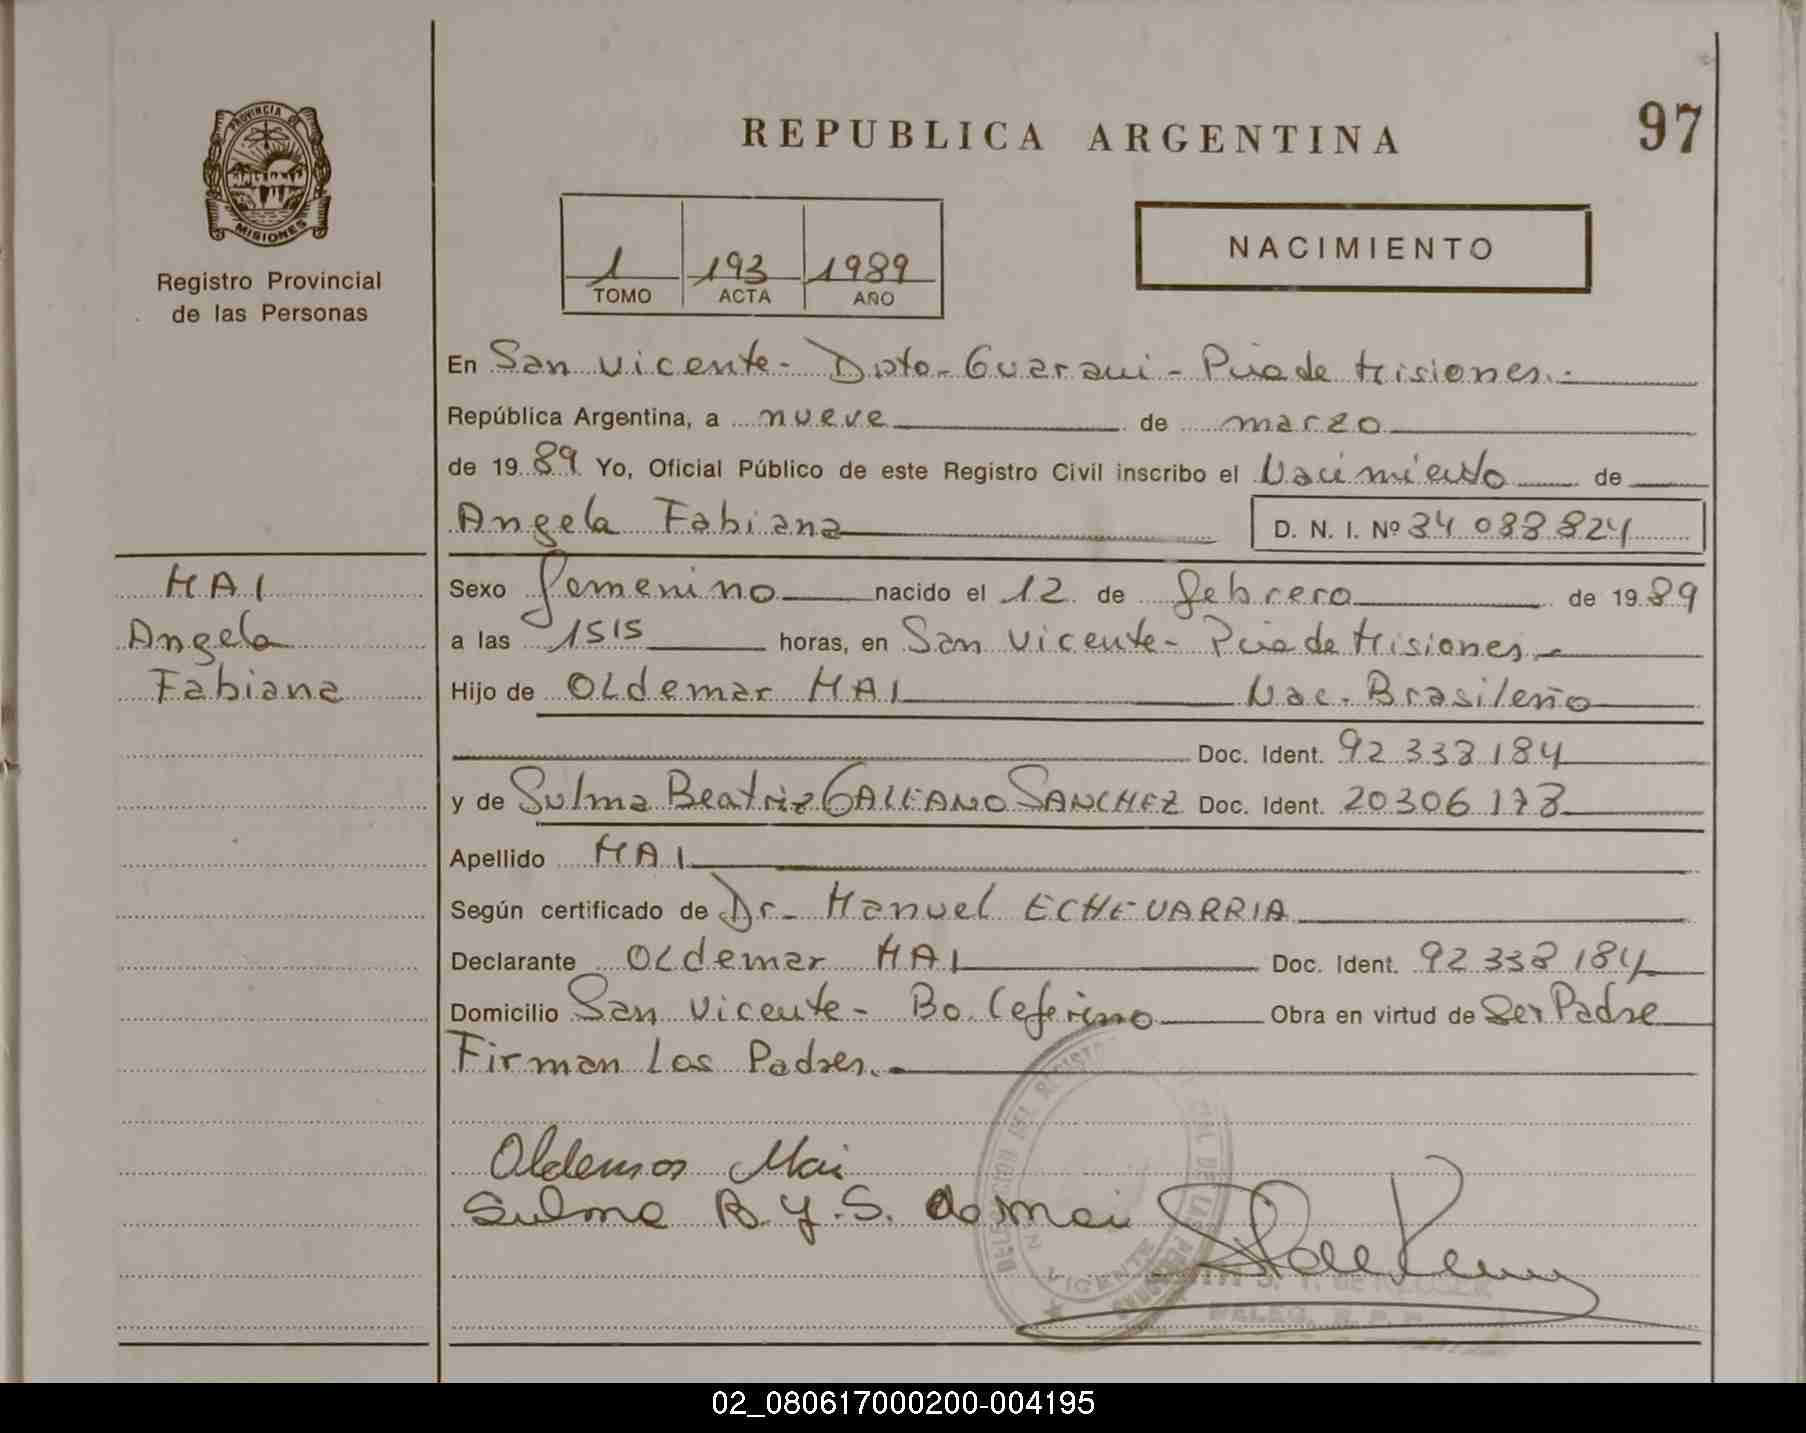 PROVINCIA DE
MISIONES
Registro Provincial
de las Personas
REPUBLICA ARGENTINA
97
1 193 1989
TOMO ACTA AÑO
NACIMIENTO
En San Vicente - Dpto - Guarani - Pcia de Misiones.-
República Argentina, a nueve de marzo
de 19 89 Yo, Oficial Público de este Registro Civil inscribo el Nacimiento de
Angela Fabiana D. N. I. Nº 34 088 824
MAI
Angela
Fabiana
Sexo femenino nacido el 12 de febrero de 19 89
a las 1515 horas, en San Vicente - Pcia de Misiones
Hijo de Oldemar MAI Nac. Brasileño
Doc. Ident. 92 338 184
y de Sulma Beatriz GALEANO SANCHEZ Doc. Ident. 20306 178
Apellido MAI
Según certificado de Dr - Manuel ECHEVARRIA
Declarante Oldemar MAI Doc. Ident. 92 338 184
Domicilio San Vicente - Bo. Ceferino Obra en virtud de Ser Padre
Firman Los Padres.
Oldemos Mai
Sulma B. y. S. de Mai
VICENTE
DELEG. R. P. P.
02_080617000200-004195